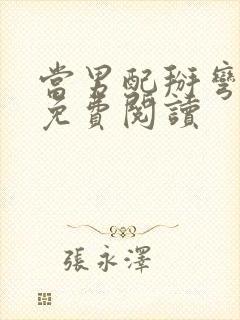 當男配掰彎
免費閱讀
張永澤